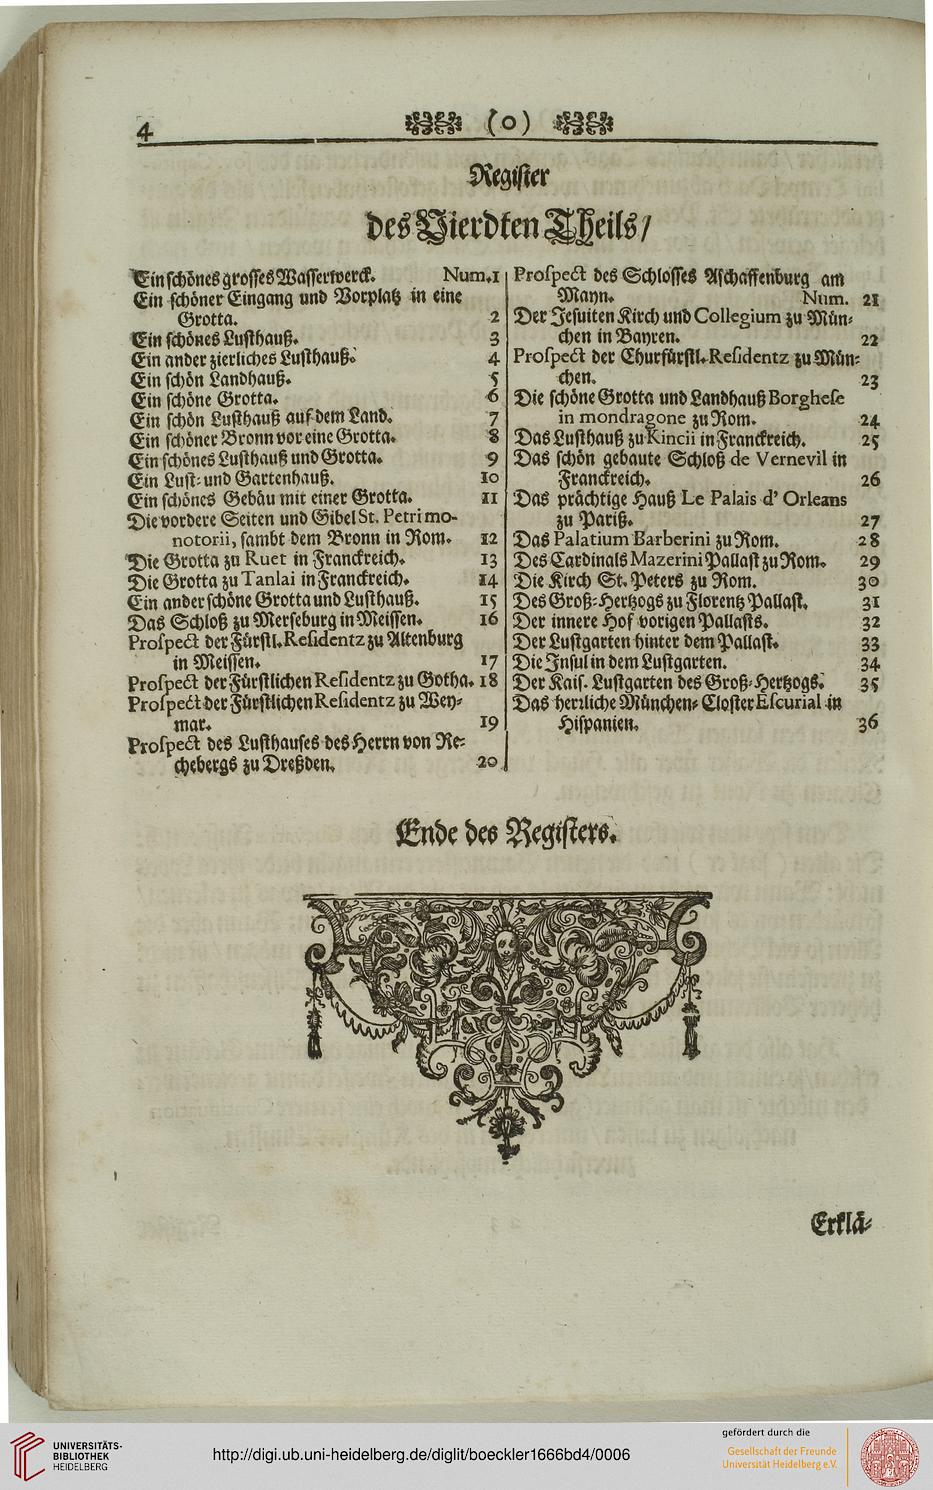 4 (o)
Register
des Vierdten Theils/
Ein schönes grosses Wasserwerck. Num. 1
Ein schöner Eingang und Vorplatz in eine
Grotta. 2
Ein schönes Lusthauß. 3
Ein ander zierliches Lusthauß. 4
Ein schön Landhauß. 5
Ein schöne Grotta. 6
Ein schön Lusthauß auf dem Land. 7
Ein schöner Bronn vor eine Grotta. 8
Ein schönes Lusthauß und Grotta. 9
Ein Lust- und Gartenhauß. 10
Ein schönes Gebäu mit einer Grotta. 11
Die vordere Seiten und Gibel St. Petri mo-
notorii, sambt dem Bronn in Rom. 12
Die Grotta zu Ruet in Franckreich. 13
Die Grotta zu Tanlai in Franckreich. 14
Ein ander schöne Grotta und Lusthauß. 15
Das Schloß zu Merseburg in Meissen. 16
Prospect der Fürstl. Residentz zu Altenburg
in Meissen. 17
Prospect der Fürstlichen Residentz zu Gotha. 18
Prospect der Fürstlichen Residentz zu Wey-
mar. 19
Prospect des Lusthauses des Herrn von Re-
chebergs zu Dreßden. 20
Prospect des Schlosses Aschaffenburg am
Mayn. Num. 21
Der Jesuiten Kirch und Collegium zu Mün-
chen in Bayren. 22
Prospect der Churfürstl. Residentz zu Mün-
chen. 23
Die schöne Grotta und Landhauß Borghese
in mondragone zu Rom. 24
Das Lusthauß zu Kincii in Franckreich. 25
Das schön gebaute Schloß de Vernevil in
Franckreich. 26
Das prächtige Hauß Le Palais d' Orleans
zu Pariß. 27
Das Palatium Barberini zu Rom. 28
Des Cardinals Mazerini Pallast zu Rom. 29
Die Kirch St. Peters zu Rom. 30
Des Groß-Hertzogs zu Florentz Pallast. 31
Der innere Hof vorigen Pallasts. 32
Der Lustgarten hinter dem Pallast. 33
Die Insul in dem Lustgarten. 34
Der Kais. Lustgarten des Groß-Hertzogs. 35
Das herrliche München-Closter Escurial in
Hispanien. 36
Ende des Registers.
Erklä-
UNIVERSITÄTS-
BIBLIOTHEK
HEIDELBERG
http://digi.ub.uni-heidelberg.de/diglit/boeckler1666bd4/0006
gefördert durch die
Gesellschaft der Freunde
Universität Heidelberg e.V.